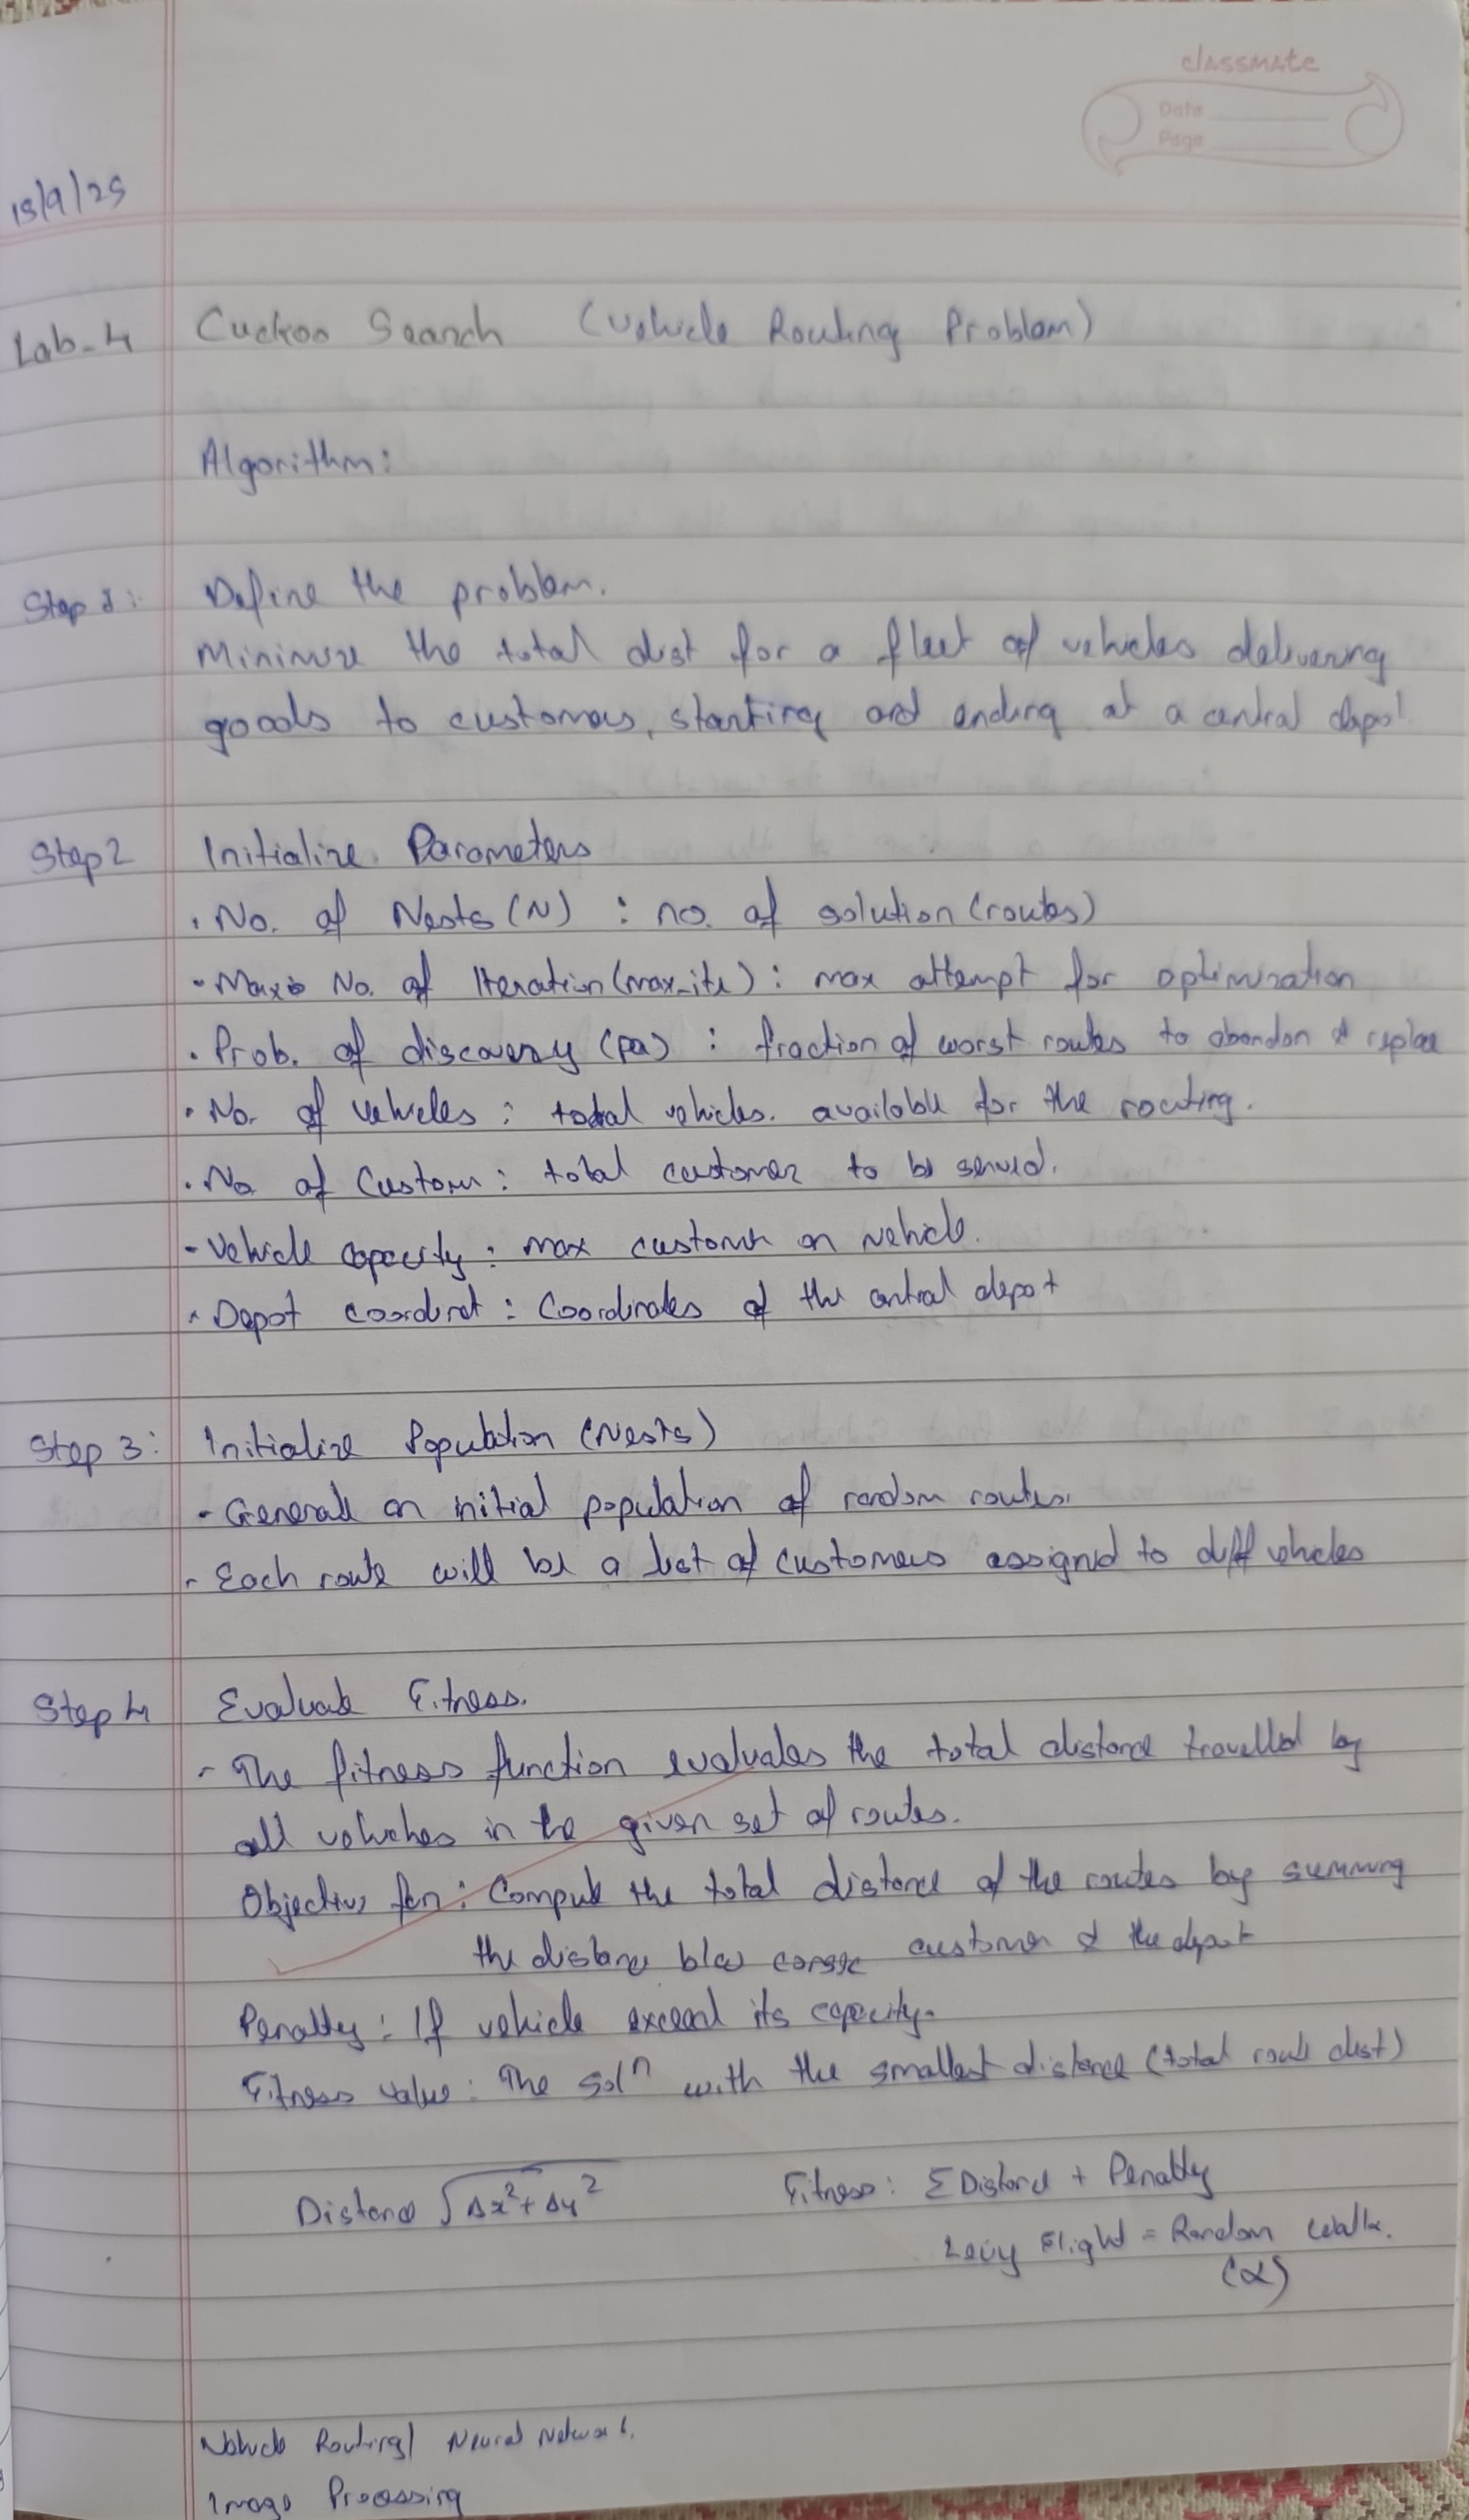 classmate
Date
Page
15/9/25
Lab-4 Cuckoo Search (Vehicle Routing Problem)
Algorithm:
Step 1: Define the problem.
Minimize the total dist for a fleet of vehicles delivering
goods to customers, starting and ending at a central depot
Step 2 Initialize Parameters
. No. of Nests (N) : no. of solution (routes)
- Max No. of Iteration (max_ite) : max attempt for optimization
. Prob. of discovery (pa) : fraction of worst routes to abandon & replace
. No. of vehicles : total vehicles. available for the routing.
. No of Custom : total customer to be served.
- Vehicle capacity : max custom on vehicle.
. Depot coordinat : Coordinates of the central depot
Step 3: Initialize Population (Nests)
- Generate an initial population of random routes.
- Each route will be a list of customers assigned to diff vehicles
Step 4 Evaluate Fitness.
- The fitness function evaluates the total distance travelled by
all vehicles in the given set of routes.
Objective fcn : Compute the total distance of the routes by summing
the distance b/w customer & the depot
Penalty : If vehicle exceed its capacity.
Fitness value : The solⁿ with the smallest distance (total route dist)
Distance √Δx²+Δy² Fitness : Σ Distance + Penalty
Levy Flight = Random Walk.
(α)
Vehicle Routing | Neural Network.
Image Processing